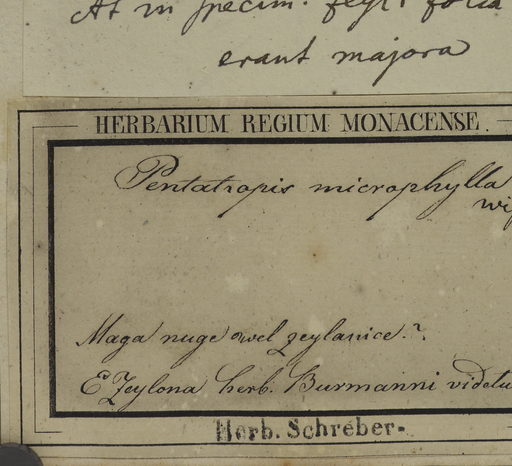 At in specim. folia
erant majora
HERBARIUM REGIUM MONACENSE.
Pentatropis microphylla
wi
Maga nuge wel zeylanice.?
E Zeylona herb. Burmanni videtu
Herb. Schreber.